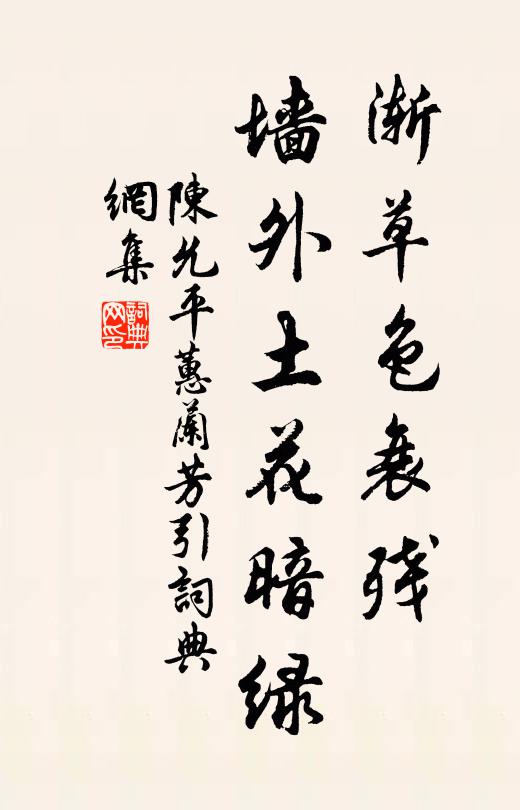 渐草色衰残
墙外土花暗绿
陳允平蕙蘭芳引詞典
網集
詞典网印